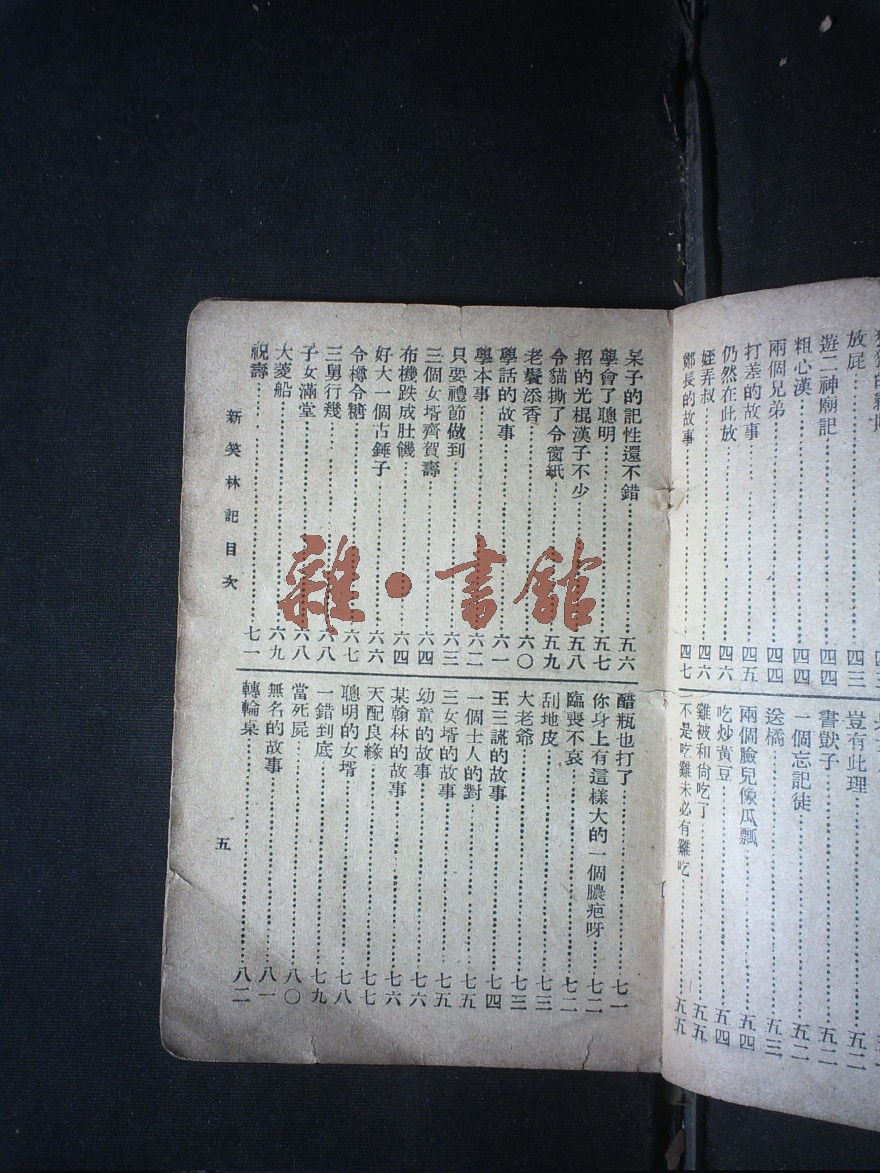 放屁……四三
遊二神廟記……四四
粗心漢……四四
兩個兄弟……四四
打差的故事……四五
仍然在此放……四六
姪弄叔……四六
鄭長的故事……四七
豈有此理……五二
書獃子……五二
一個忘記徒……五二
送橘……五三
兩個臉兒像瓜瓢……五四
吃炒黃豆……五四
雞被和尙吃了……五五
不是吃雞未必有雞吃……五五
呆子的記性還不錯……五六
學會了聰明……五七
招的光棍漢子不少……五八
令貓撕了令窗紙……五九
老鬢添香……六〇
學話的故事……六一
學本事……六二
只要禮節做到……六三
三個女壻齊賀壽……六四
布機跌成肚饑……六四
好大一個古錘子……六六
令樽令糖……六七
三舅行幾……六八
子女滿堂……六八
大菱船……六九
祝壽……七一
醋瓶也打了……七一
你身上有這樣大的一個膿疤呀……七二
臨喪不哀……七二
刮地皮……七三
大老爺……七三
王三謊的故事……七四
一個士人的對……七五
三女壻的故事……七五
幼童的故事……七六
某翰林的故事……七六
天配良緣……七七
聰明的女壻……七八
一錯到底……七九
當死屍……八〇
無名的故事……八一
轉輪桌……八二
新笑林記目次
五
雜·書館